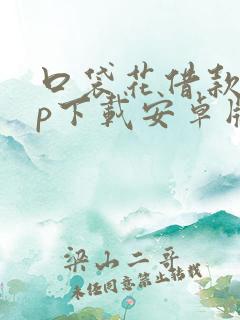 口袋花借款
p下载安卓版
梁山二哥
未经同意禁止转载